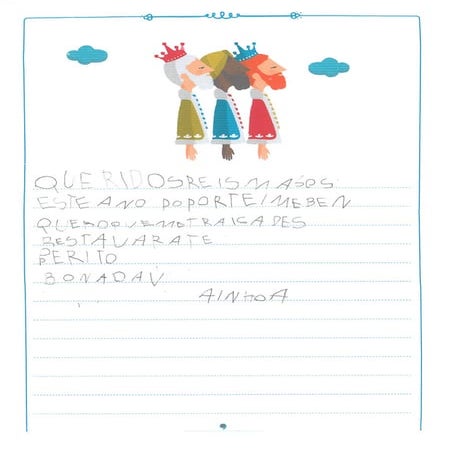 QUERIDOSREISMAGOS
ESTE ANO POPORTEIMEBEN
QUEROQUEMETRAIGADES
BESTAVARATE
PERITO
BONADAV
AINHOA